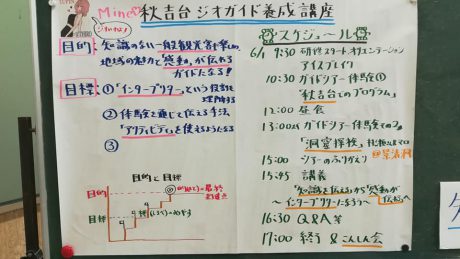 Mine
秋吉台ジオガイド養成講座
目的:知識のない一般観光客を楽しめ、
地域の魅力と感動が伝わる
ガイドになる!
目標:①「インタープリター」という役割を
理解する
②体験を通じて伝える手法
「アクティビティ」を使えるようになる
③
目的と目標
目的
目標
スケジュール
6/1 9:30 研修スタート、オリエンテーション
アイスブレイク
10:30 ガイドツアー体験①
「秋吉台でのプログラム」
12:00 昼会
13:00 ガイドツアー体験その②
「洞窟探検」
15:00 ツアーのふりかえり
15:45 講義
「知識を伝える」から「感動が伝わる」へ
〜インタープリターになろう〜
16:30 Q&A等
17:00 終了 & こんしん会